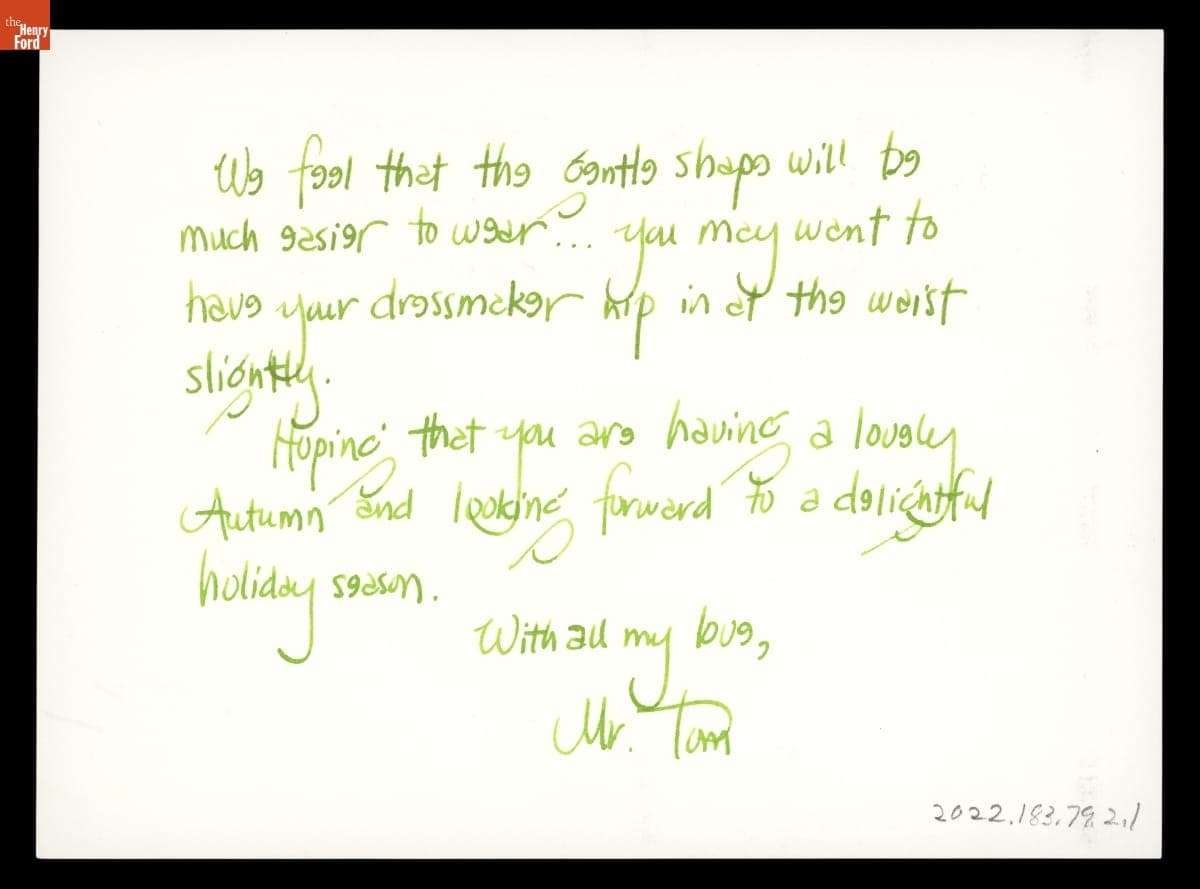 the
Henry
Ford
We feel that the gentle shape will be
much easier to wear... you may want to
have your dressmaker nip in at the waist
slightly.
Hoping that you are having a lovely
Autumn and looking forward to a delightful
holiday season.
With all my love,
Mr. Tom
2022.183.79.2.1